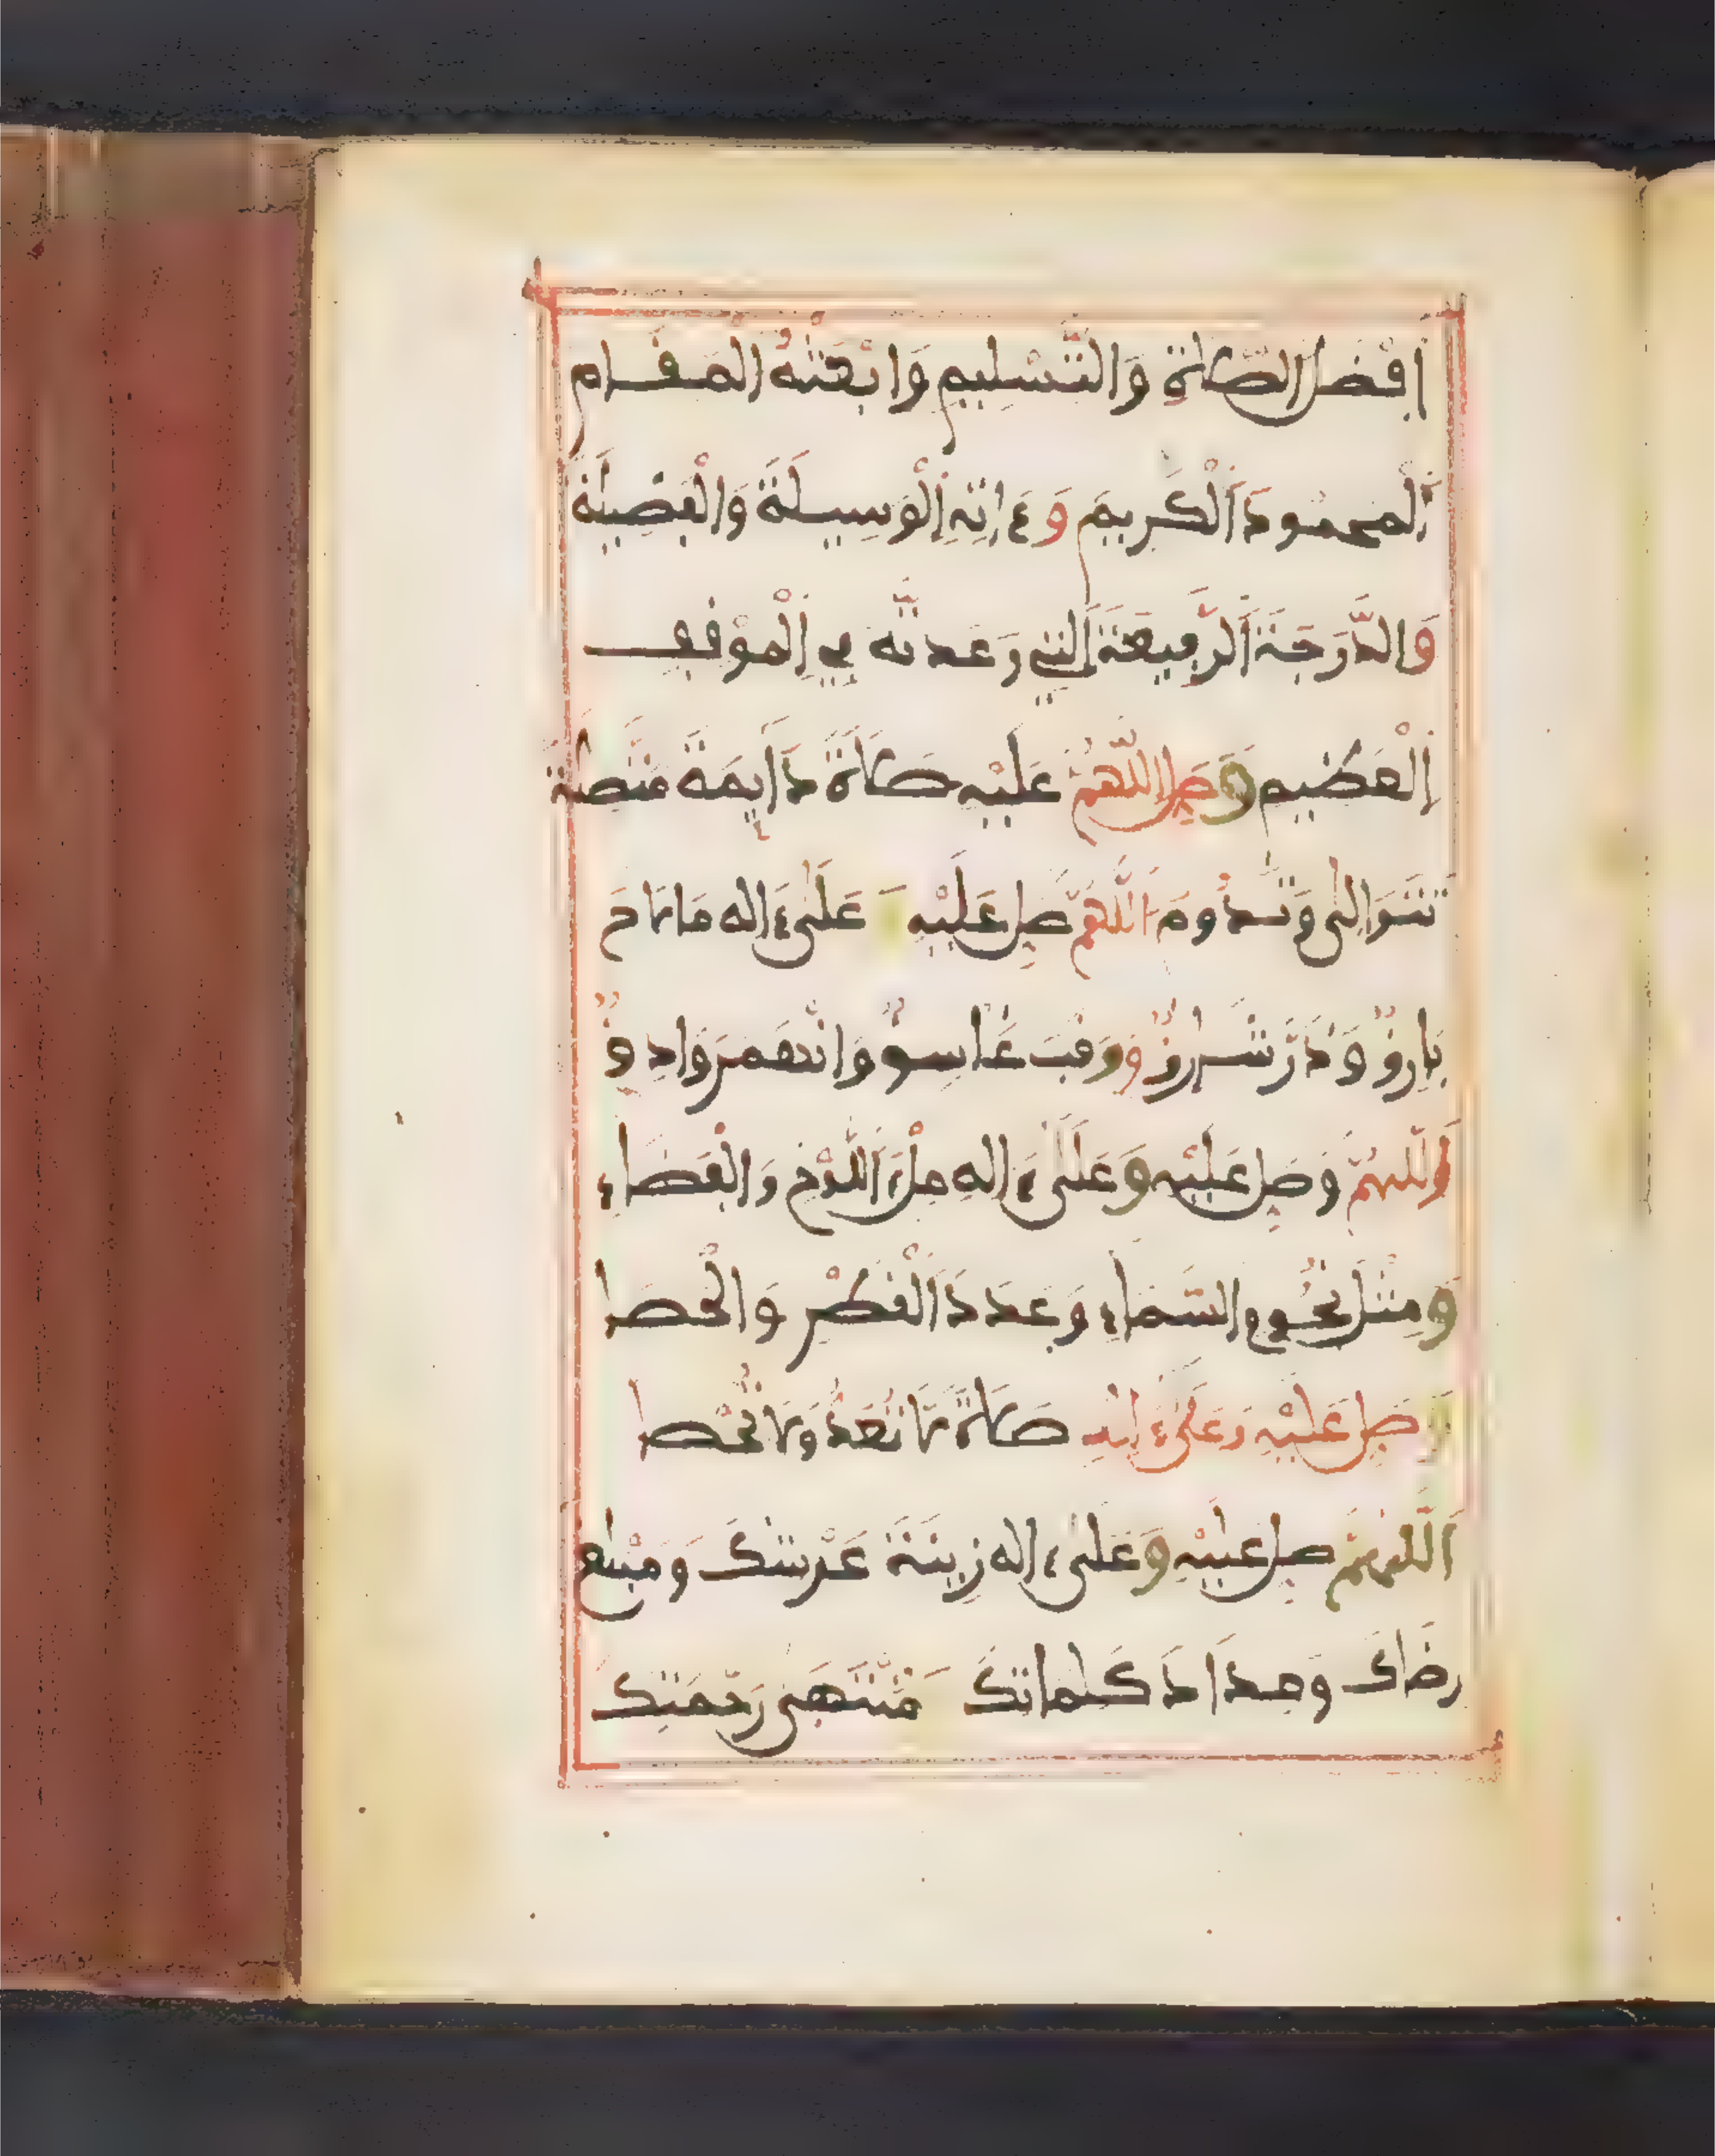 اَفْضَلَ الصَّلَاةِ وَالتَّسْلِيمِ وَابْعَثْهُ الْمَقَـام
اَلْمَحمُودَ اَلْكَرِيمَ وَءَاتِهِ اِلْوَسِيلَةَ وَالْفَضِيلَةَ
وَالدَّرَجَةَ اَلرَّفِيعَةَ اَلتِي وَعَدتَّه فِي اِلْمَوْقِفِ
اِلْعَظِيم وَصَلِّ اللَّهُمَّ عَلَيْهِ صَلَاةً دَآيِمَةً مُتَّصِلَةً
تَتَوَالَى وَتَدُومَ اَللَّهُمَّ صَلِّ عَلَيْهِ وَعَلَى ءَالِه مَا لَاحَ
بَارِقٌ وَذَرَّ شَارِقٌ وَوَقَبَ غَاسِقٌ وَانْهَمَرَ وَادِقٌ
اَللَّهُمَّ وَصَلِّ عَلَيْهِ وَعَلَى ءَالِهِ مِلْءَ اَللَّوْحِ وَالْفَضَاءِ
وَمِثْلَ نُجُومِ السَّمَاءِ وَعَدَدَ اَلْقَطْرِ وَالْحَصَا
وَصَلِّ عَلَيْهِ وَعَلَى ءَالِهِ صَلَاةً لَا تُعَدُّ وَلَا تُحْصَا
اَللَّهُمَّ صَلِّ عَلَيْهِ وَعَلَى ءَالِه زِينَةَ عَرْشِكَ وَمَبْلَغَ
رِضَاكَ وَمِدَادَ كَلِمَاتِكَ وَمُنْتَهَى رَحْمَتِكَ